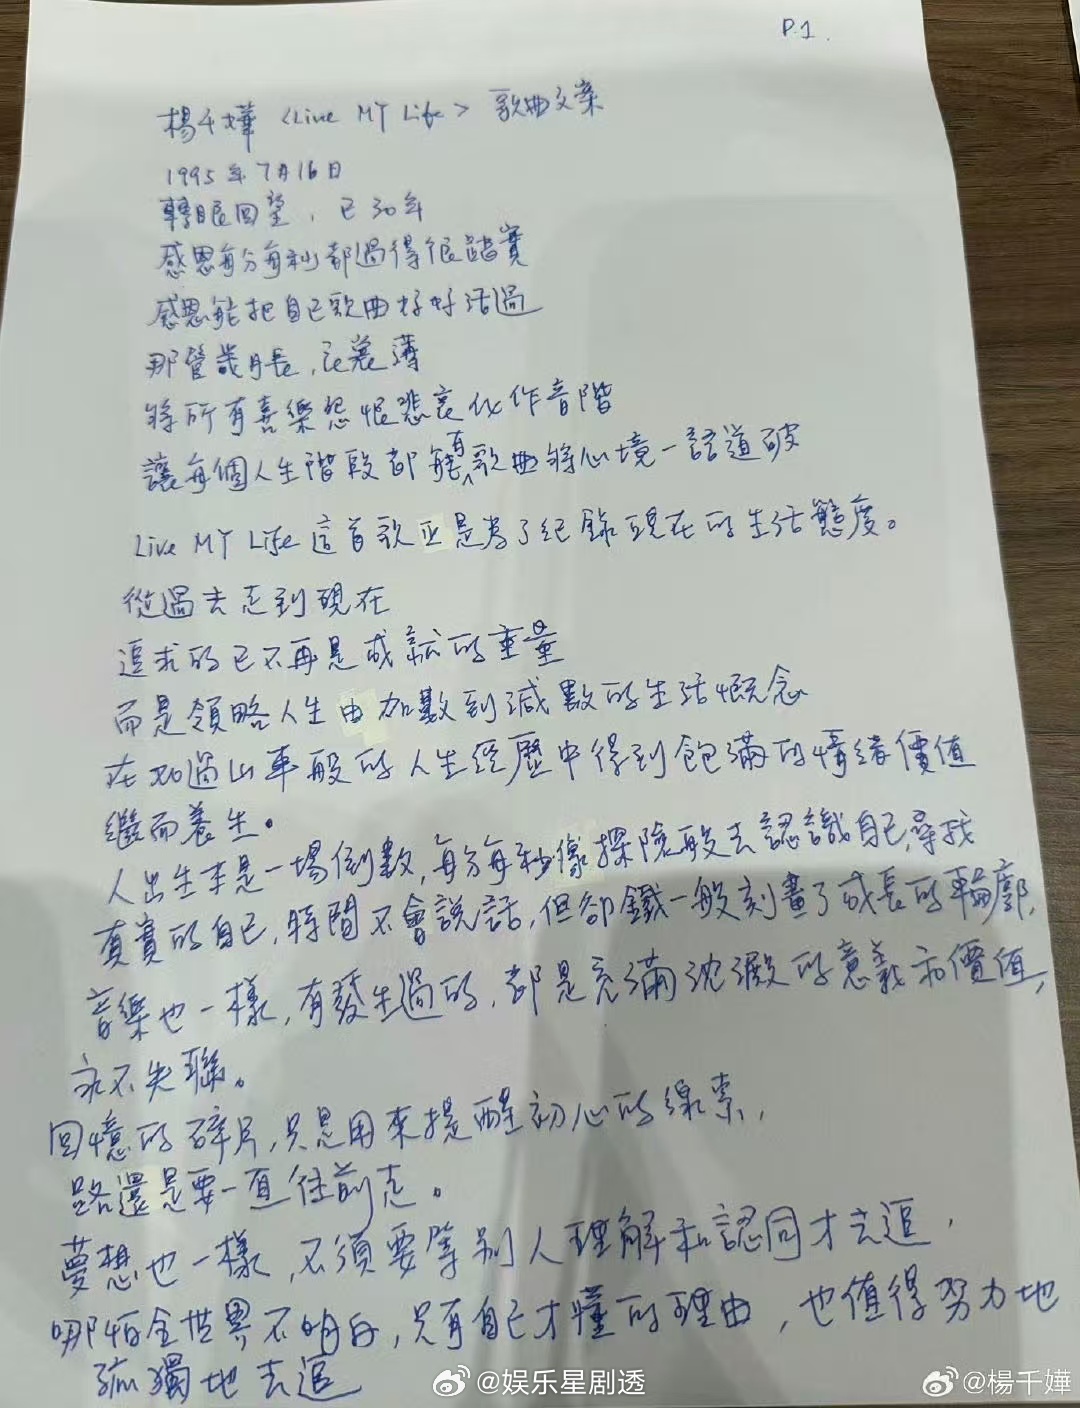 P.1.
楊千嬅 <Live MY Life> 歌曲文案
1995年7月16日
轉眼回望，已30年
感恩每分每秒都過得很踏實
感恩能把自己歌曲好好活過
那管歲月長，衣裳薄
將所有喜樂怨恨悲哀化作音階
讓每個人生階段都能有歌曲將心境一語道破
Live MY Life 這首歌正是為了紀錄現在的生活態度。
從過去走到現在
追求的已不再是成就的重量
而是領略人生由加數到減數的生活概念
在如過山車般的人生經歷中得到飽滿的情緒價值
繼而養生。
人出生本是一場倒數，每分每秒像探險般去認識自己，尋找
真實的自己，時間不會說話，但卻鐵一般刻畫了成長的輪廓，
音樂也一樣，有發生過的，都是充滿沈澱的意義和價值，
永不失聯。
回憶的碎片，只是用來提醒初心的線索，
路還是要一直往前走。
夢想也一樣，不須要等別人理解和認同才去追，
哪怕全世界不明白，只有自己才懂的理由，也值得努力地
孤獨地去追
@娱乐星剧透
@楊千嬅